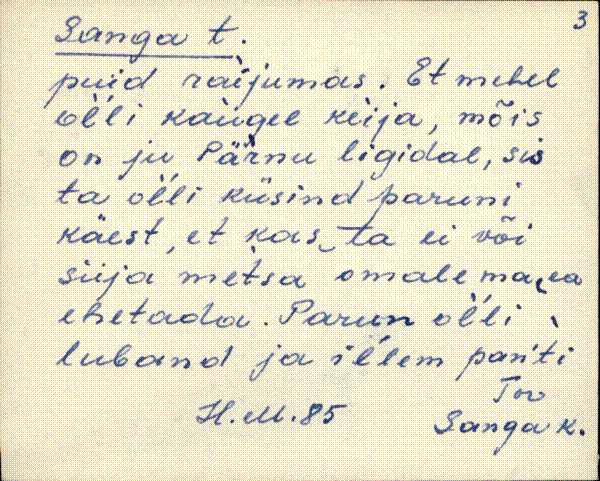 3
Sanga t.
puid raijumas. Et mehel
olli kaugel keija, mõis
on ju Pärnu ligidal, sis
ta olli küsind paruni
käest, et kas ta ei või
siija metsa omale maea
ehetada. Parun olli
luband ja illem panti
Tor
H.M.85 Sanga k.